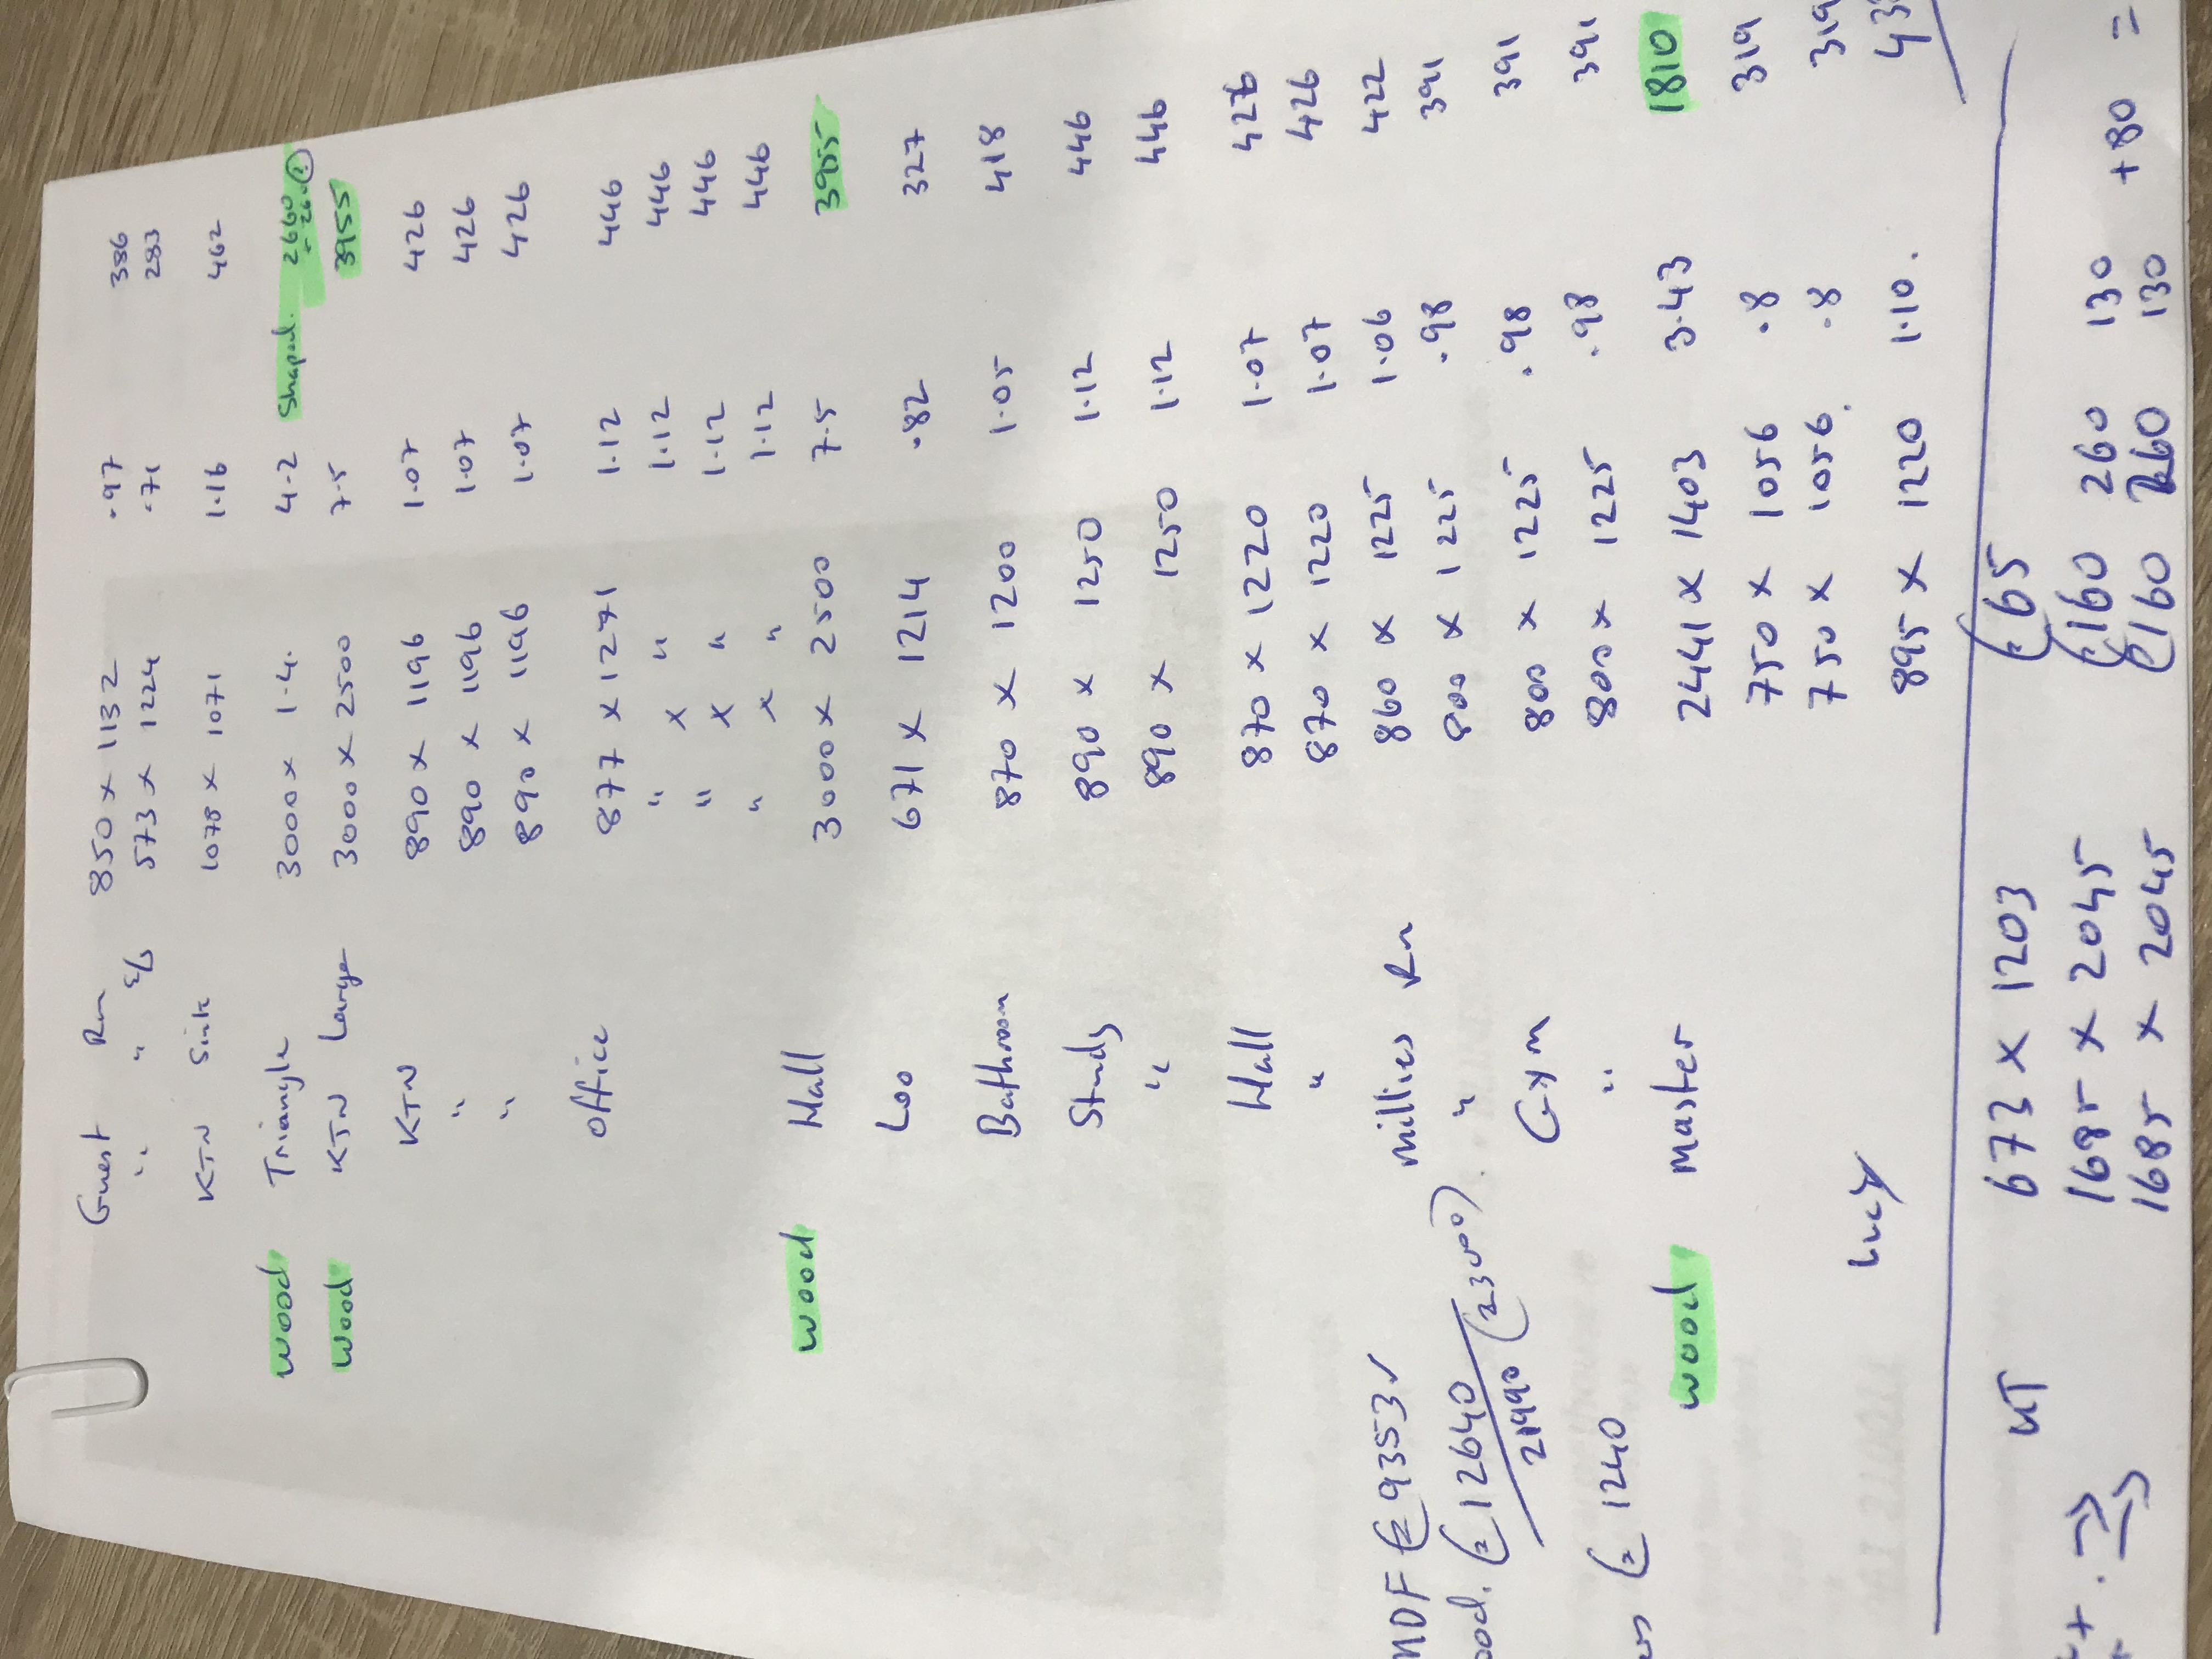 Guest Rm 850 x 1132 .97 386
" " E/S 573 x 1224 .71 283
KTN Sink 1078 x 1071 1.16 462
wood Triangle 3000 x 1.4. 4.2 Shaped. 2660
wood KTN Large 3000 x 2500 7.5 3955
KTN 890 x 1196 1.07 426
" 890 x 1196 1.07 426
" 890 x 1196 1.07 426
Office 877 x 1271 1.12 446
" x " 1.12 446
" x " 1.12 446
" x " 1.12 446
wood Hall 3000 x 2500 7.5 3955
Loo 671 x 1214 .82 327
Bathroom 870 x 1200 1.05 418
Study 890 x 1250 1.12 446
" 890 x 1250 1.12 446
Hall 870 x 1220 1.07 426
" 870 x 1220 1.07 426
millies Rm 860 x 1225 1.06 422
" 800 x 1225 .98 391
Gym 800 x 1225 .98 391
" 800 x 1225 .98 391
wood master 2441 x 1403 3.43 1810
750 x 1056 .8 319
Lucy 750 x 1056. .8 319
895 x 1220 1.10.
MDF £9353 ✓
£12640
21990 (2300)
£1240
UT 673 x 1203 £65
1685 x 2045 £160 260 130
1685 x 2045 £160 260 130 +80 =